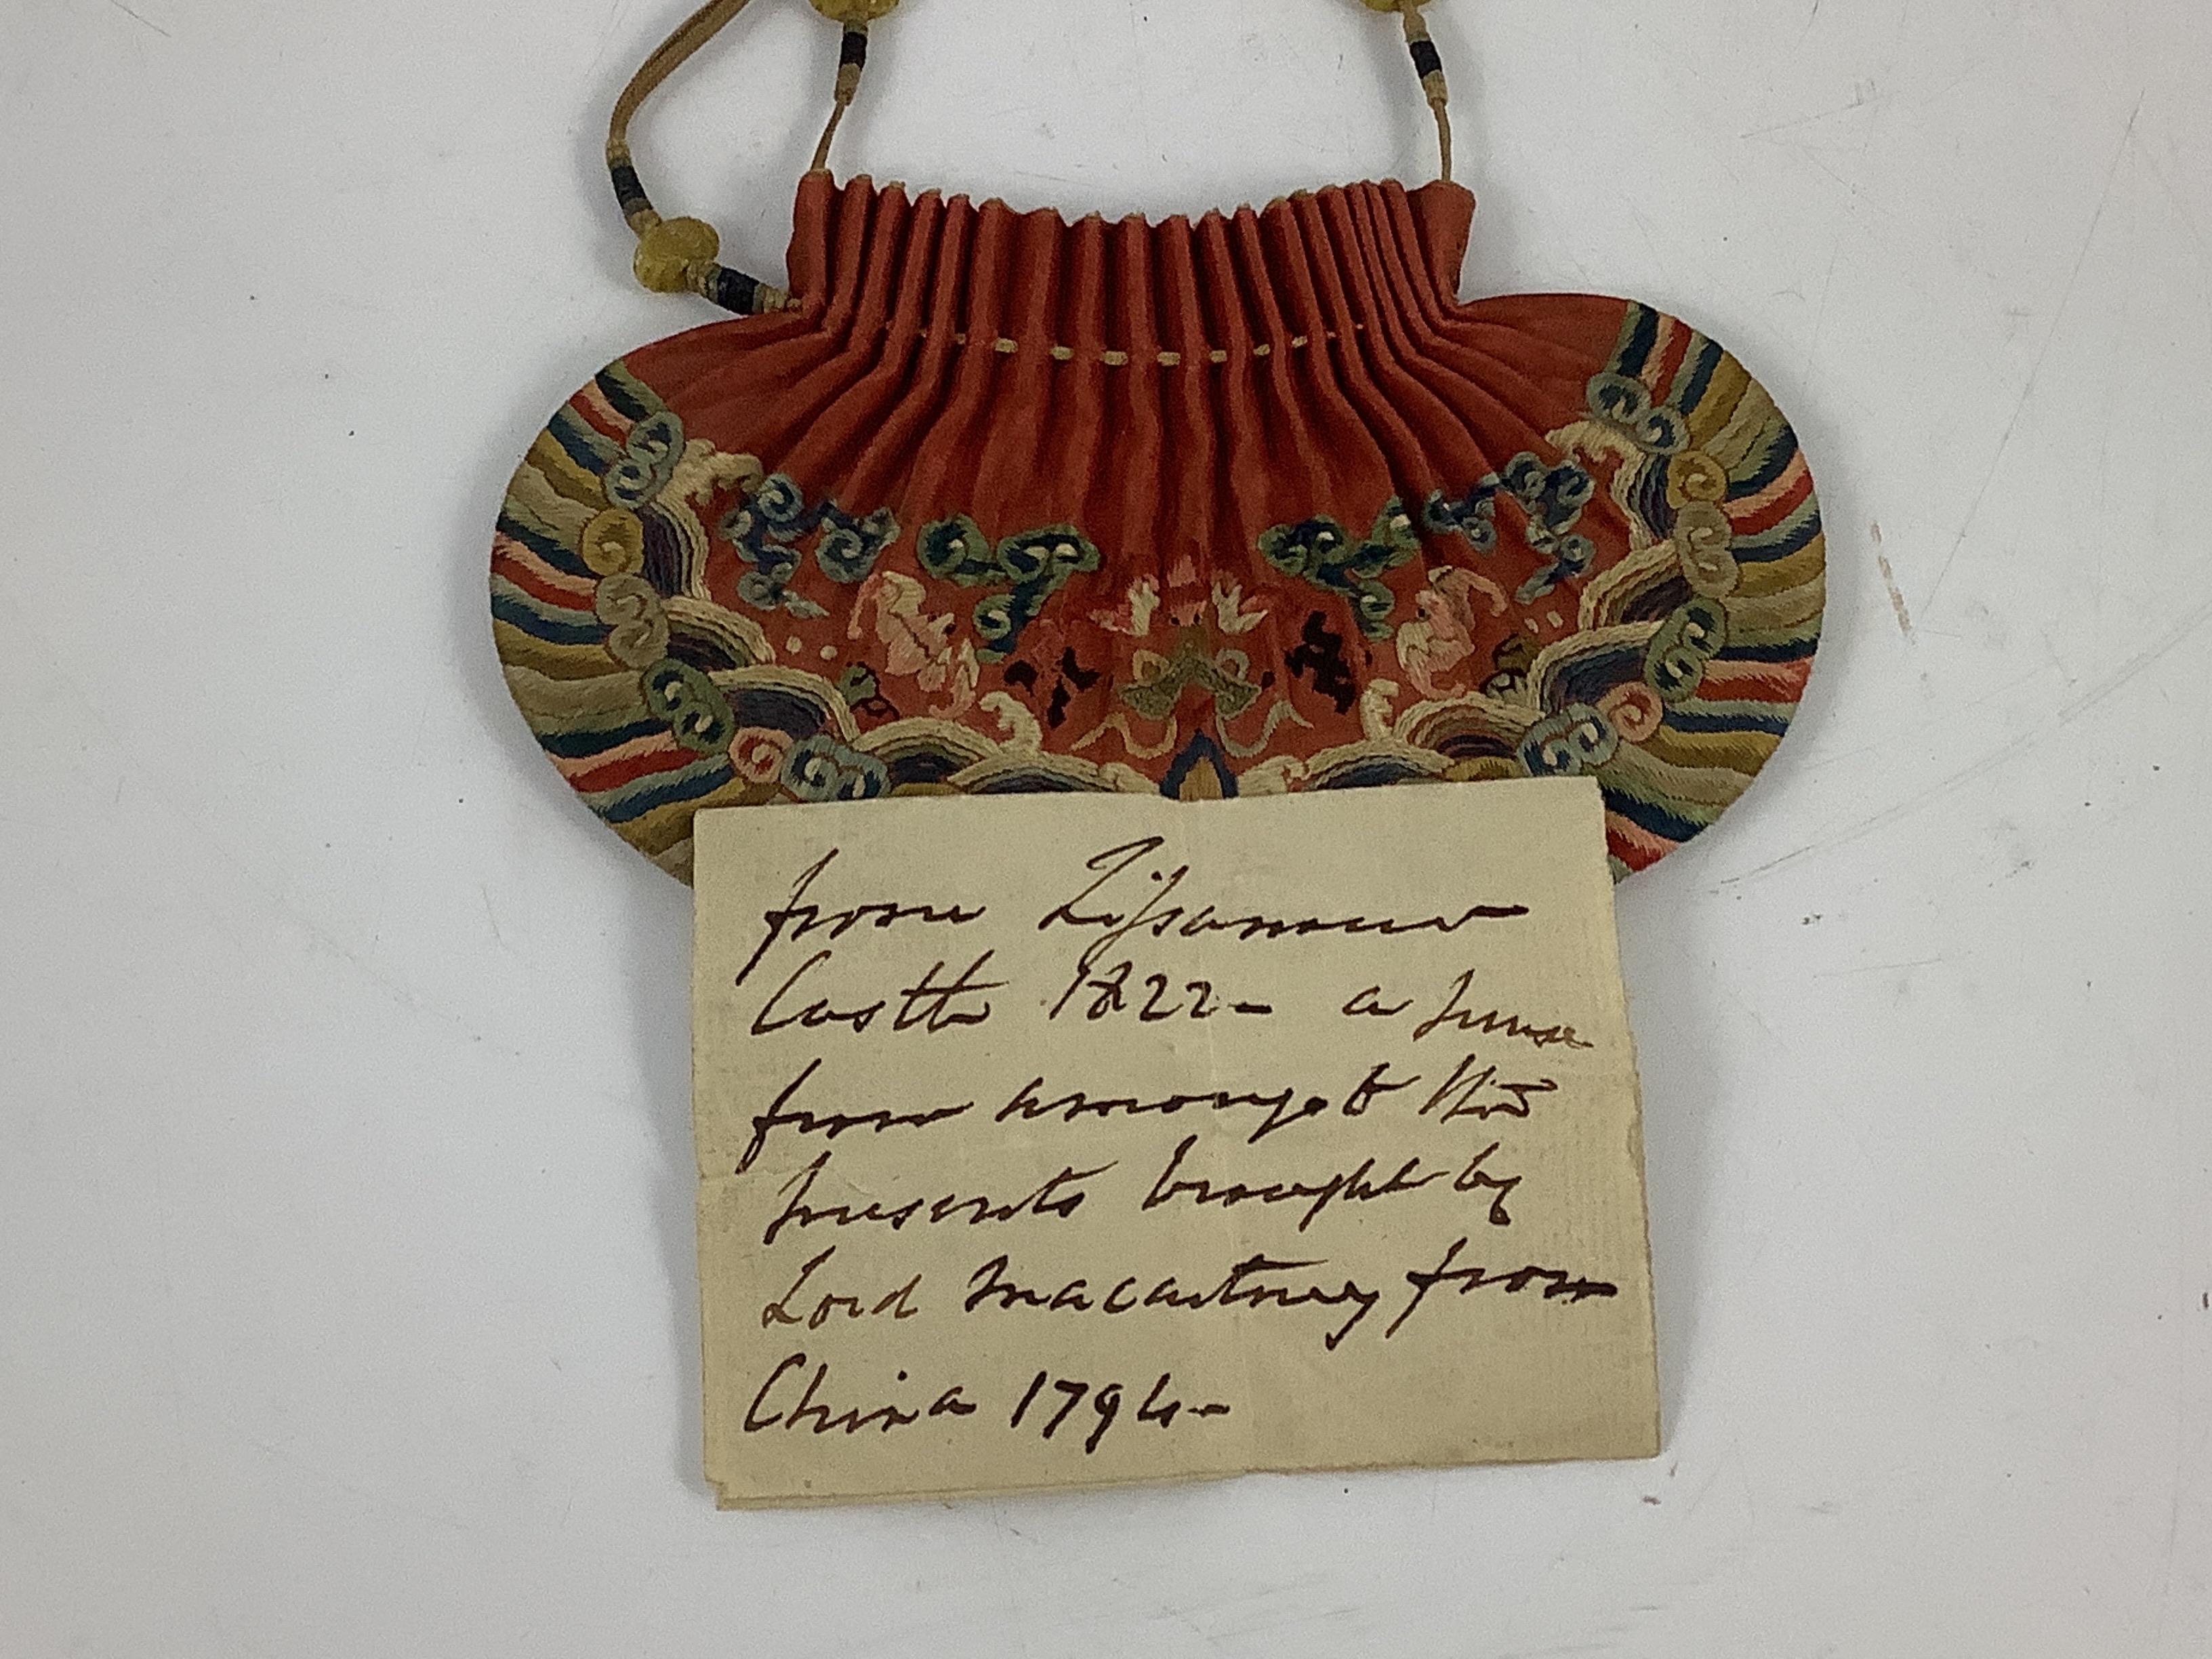 from Lissanoure
Castle 1822 - a purse
from amongst the
presents brought by
Lord Macartney from
China 1794 -